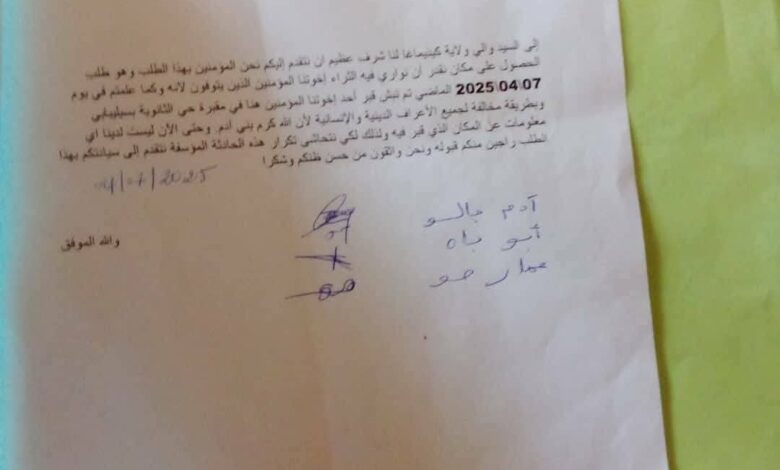 إلى السيد والي ولاية كينيماغا لنا شرف عظيم ان نتقدم إليكم نحن المؤمنين بهذا الطلب وهو طلب
الحصول على مكان نقدر أن نواري فيه الثراء إخوتنا المؤمنين الذين يتوفون لانه وكما علمتم في يوم
2025\04\07 الماضي تم نبش قبر أحد إخوتنا المؤمنين هنا في مقبرة حي الثانوية بسيليبابي
وبطريقة مخالفة لجميع الأعراف الدينية والإنسانية لأن الله كرم بني آدم. وحتى الآن ليست لدينا اي
معلومات عن المكان الذي قبر فيه ولذلك لكي نتحاشى تكرار هذه الحادثة المؤسفة نتقدم الى سيادتكم بهذا
الطلب راجين منكم قبوله ونحن واثقون من حسن ظنكم وشكرا
/2025
آدم جالو
أبو باه
عمار
والله الموفق